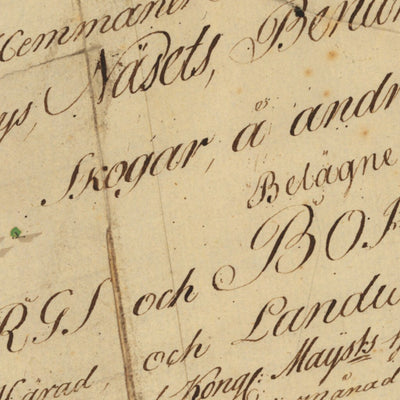 Hemmanen
Näsets, Benä
Skogar, å andr
Belägne
RGS och BOR
och Landu
Härad,
Kongl: Maysts
månad